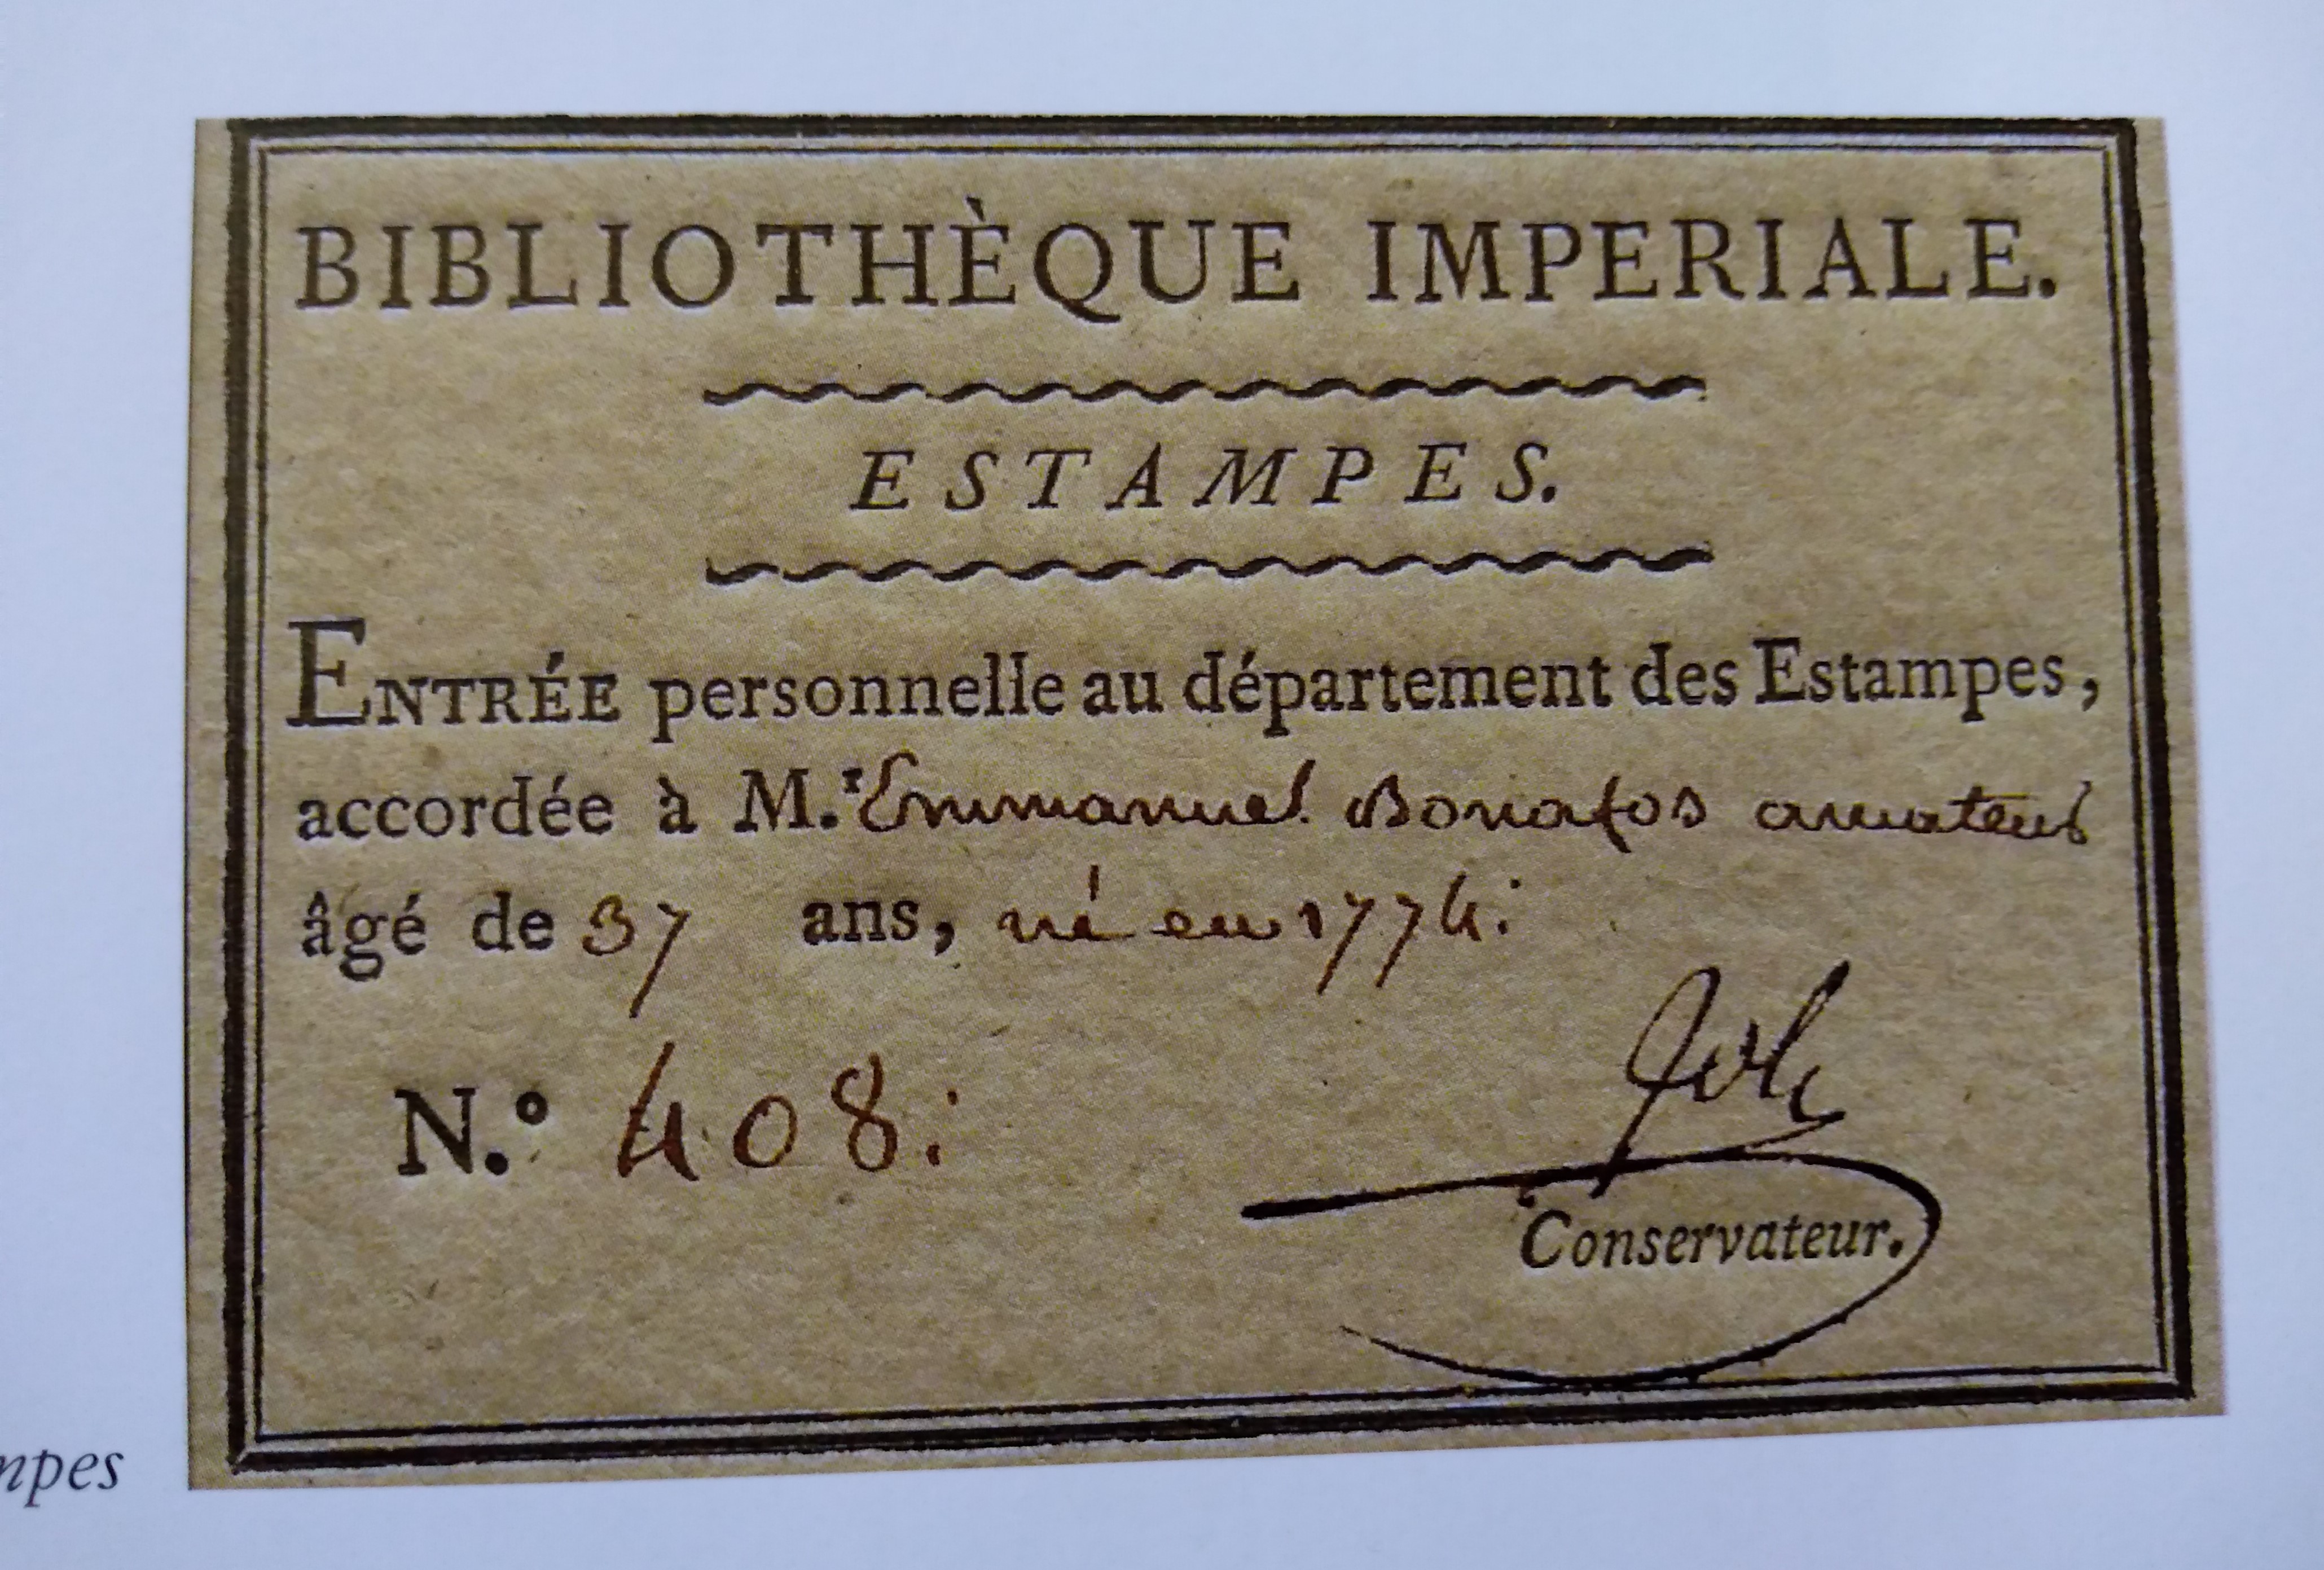 BIBLIOTHÈQUE IMPERIALE.
ESTAMPES.
ENTRÉE personnelle au département des Estampes,
accordée à M.r Emmanuel Bonafos amateur
âgé de 37 ans, né en 1774.
N.º 408.
Joly
Conservateur.
mpes